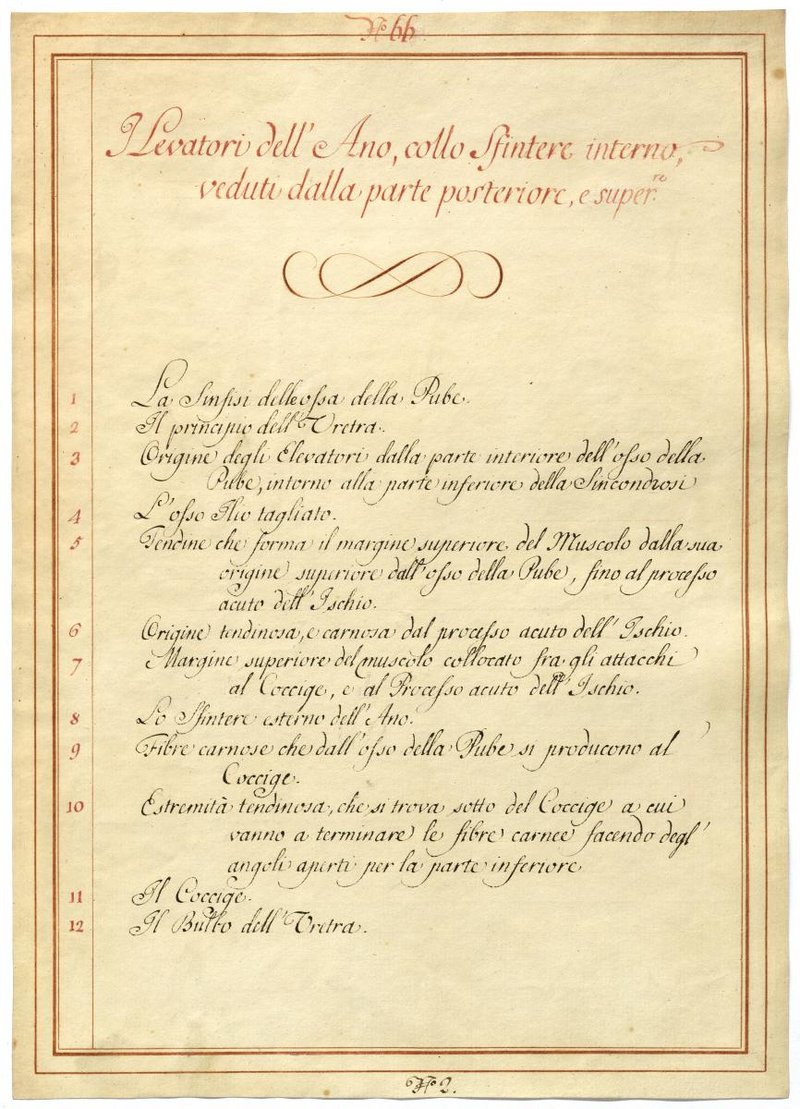 N.º 66.
I Levatori dell' Ano, collo Sfintere interno,
veduti dalla parte posteriore, e super.re
1 La Sinfisi delle ossa della Pube.
2 Il principio dell' Uretra.
3 Origine degli Elevatori dalla parte interiore dell' osso della
Pube, intorno alla parte inferiore della Sincondrosi
4 L' osso Ilio tagliato.
5 Tendine che forma il margine superiore del Muscolo dalla sua
origine superiore dall' osso della Pube, fino al processo
acuto dell' Ischio.
6 Origine tendinosa, e carnosa dal processo acuto dell' Ischio.
7 Margine superiore del muscolo collocato fra gli attacchi
al Coccige, e al Processo acuto dell' Ischio.
8 Lo Sfintere esterno dell' Ano.
9 Fibre carnose che dall' osso della Pube si producono al
Coccige.
10 Estremità tendinosa, che si trova sotto del Coccige a cui
vanno a terminare le fibre carnee facendo degl'
angoli aperti per la parte inferiore
11 Il Coccige.
12 Il Bulbo dell' Uretra.
N.º 2.